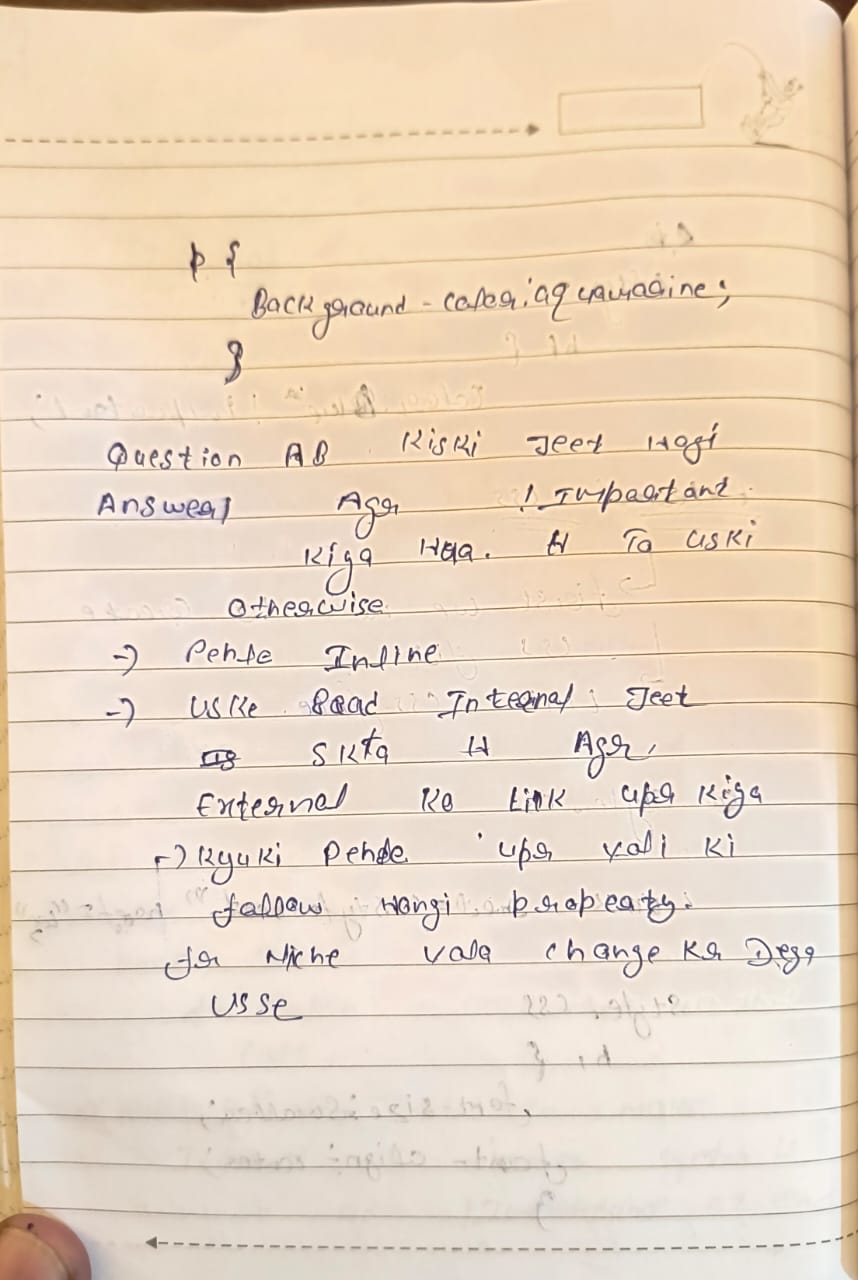 p {
Background-color: aquamarine;
}
Question AB Kiski Jeet Hogi
Answer Agr ! Important
Kiya Hua. H To uski
Otherwise
-> Pehle Inline
-> USKe Baad Internal Jeet
Skta H Agr,
External Ka Link upr Kiya
-> Kyuki Pehle upr vali ki
follow Hongi property.
fir Niche vala change Kr Dega
USSe